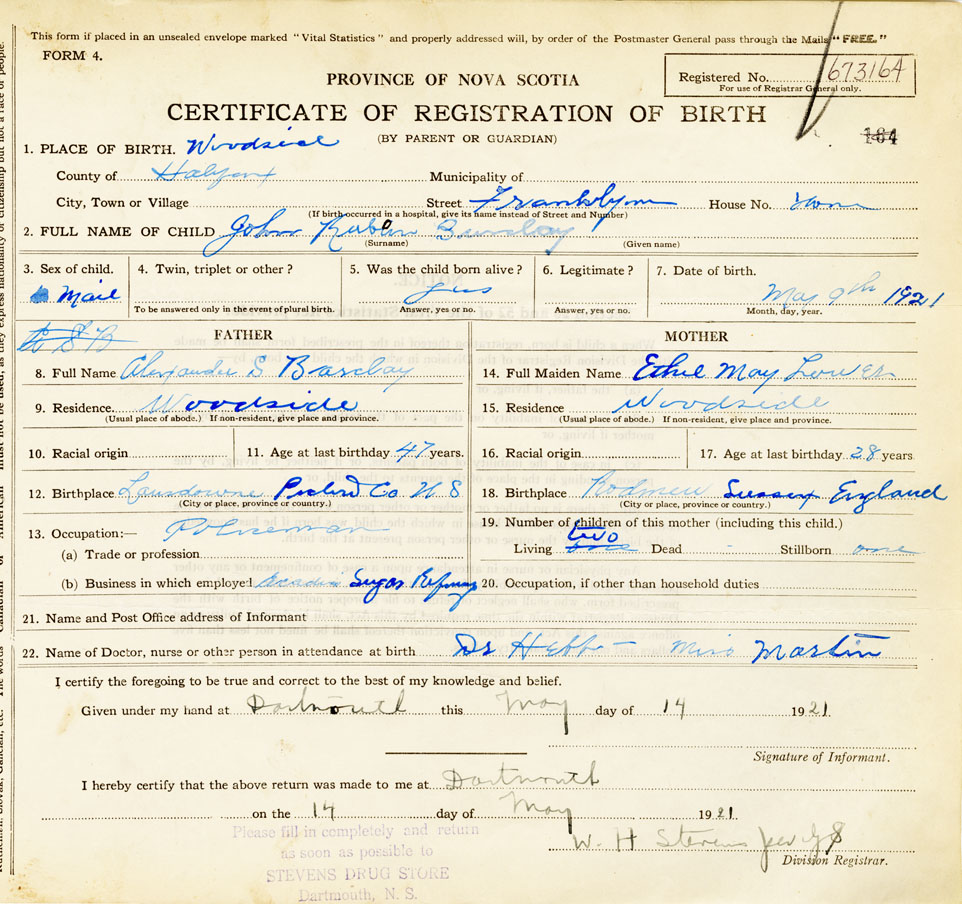 This form if placed in an unsealed envelope marked "Vital Statistics" and properly addressed will, by order of the Postmaster General pass through the Mails "FREE."
FORM 4.
PROVINCE OF NOVA SCOTIA
Registered No. 673164
For use of Registrar General only.
CERTIFICATE OF REGISTRATION OF BIRTH
(BY PARENT OR GUARDIAN)
184
1. PLACE OF BIRTH. Woodside
County of Halifax Municipality of
City, Town or Village Street Franklyn House No.
(If birth occurred in a hospital, give its name instead of Street and Number)
2. FULL NAME OF CHILD John Barclay
(Surname) (Given name)
3. Sex of child. 4. Twin, triplet or other? 5. Was the child born alive? 6. Legitimate? 7. Date of birth.
Mail yes May 9th 1921
To be answered only in the event of plural birth. Answer, yes or no. Answer, yes or no. Month, day, year.
FATHER MOTHER
8. Full Name Alexander S Barclay 14. Full Maiden Name Ethel May
9. Residence Woodside 15. Residence Woodside
(Usual place of abode.) If non-resident, give place and province. (Usual place of abode.) If non-resident, give place and province.
10. Racial origin 11. Age at last birthday 47 years. 16. Racial origin 17. Age at last birthday 28 years
12. Birthplace Lansdowne Co N S 18. Birthplace Sussex England
(City or place, province or country.) (City or place, province or country.)
13. Occupation:— Policeman 19. Number of children of this mother (including this child.)
(a) Trade or profession Living two one Dead - Stillborn one
(b) Business in which employed Acadia Sugar Refinery 20. Occupation, if other than household duties
21. Name and Post Office address of Informant
22. Name of Doctor, nurse or other person in attendance at birth Dr Hebb - Miss Martin
I certify the foregoing to be true and correct to the best of my knowledge and belief.
Given under my hand at Dartmouth this May day of 14 1921
Signature of Informant.
I hereby certify that the above return was made to me at Dartmouth
on the 14 day of May 1921.
W. H Stevens
Division Registrar.
Please fill in completely and return
as soon as possible to
STEVENS DRUG STORE
Dartmouth, N. S.